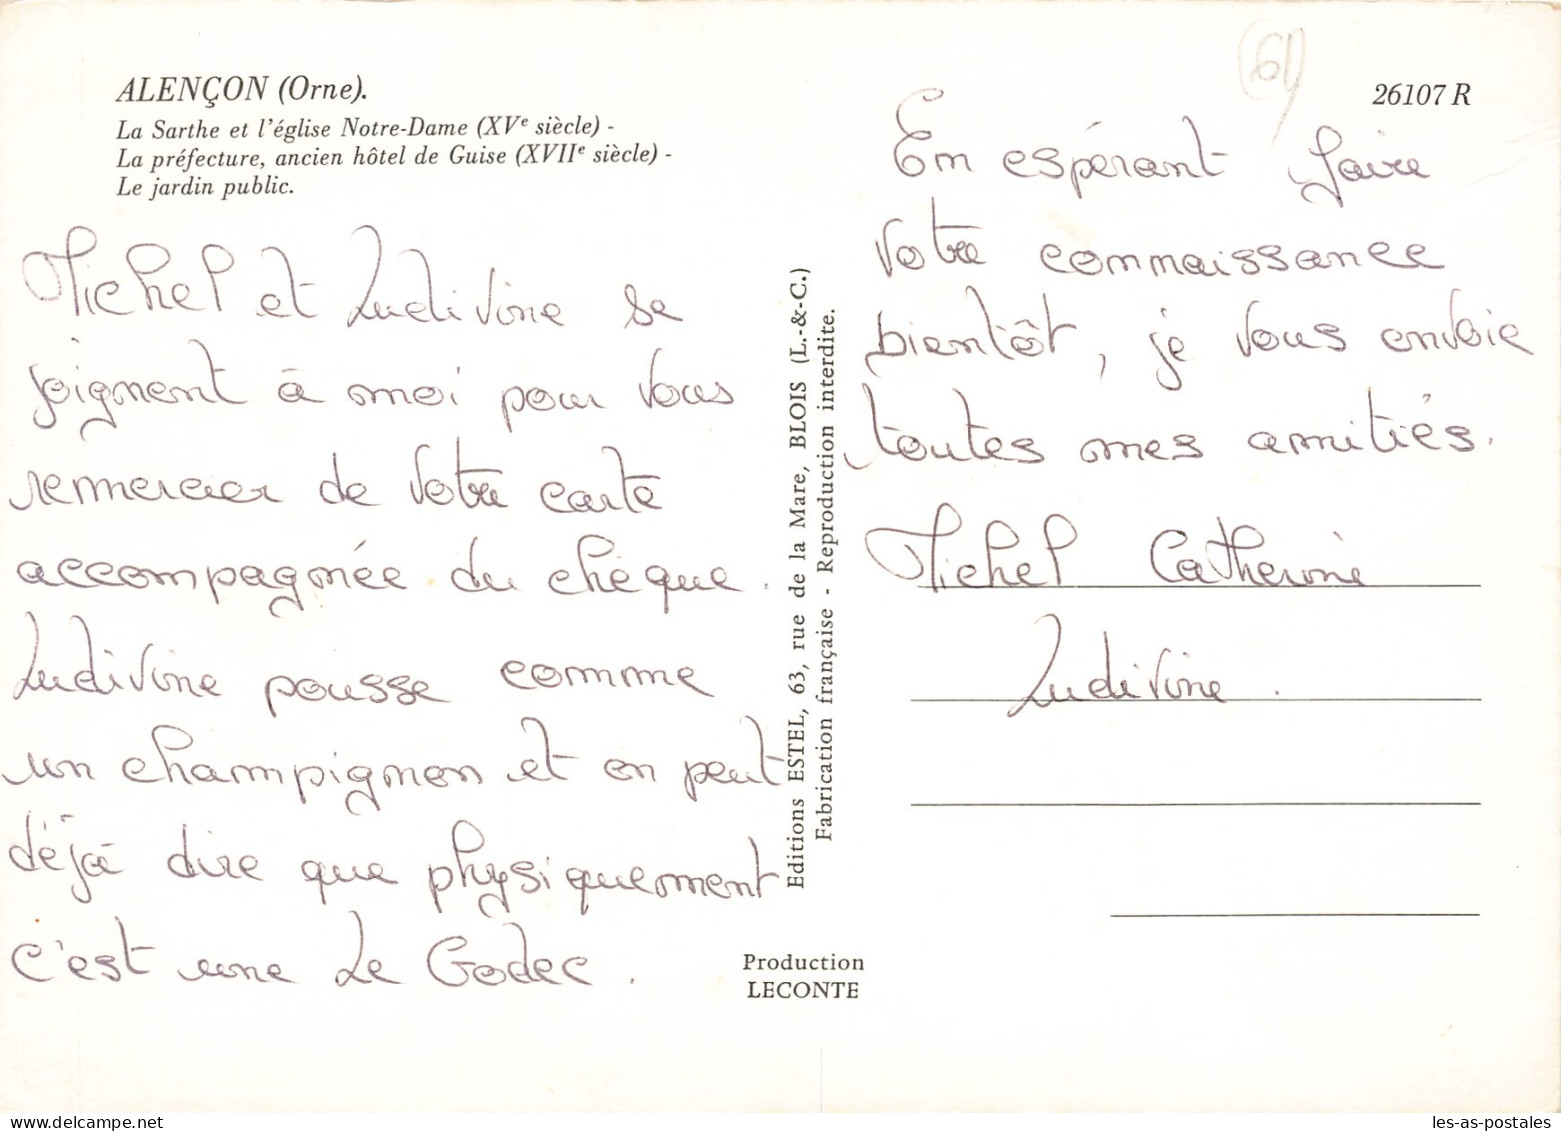 ALENÇON (Orne).
La Sarthe et l'église Notre-Dame (XVe siècle) -
La préfecture, ancien hôtel de Guise (XVIIe siècle) -
Le jardin public.
Michel et Ludivine se
joignent à moi pour vous
remercier de votre carte
accompagnée du chèque.
Ludivine pousse comme
un champignon et on peut
déjà dire que physiquement
c'est une Le Godec.
Editions ESTEL, 63, rue de la Mare, BLOIS (L.-&-C.)
Fabrication française - Reproduction interdite.
Production
LECONTE
61
26107 R
En espérant faire
votre connaissance
bientôt, je vous envoie
toutes mes amitiés.
Michel Catherine
Ludivine.
les-as-postales